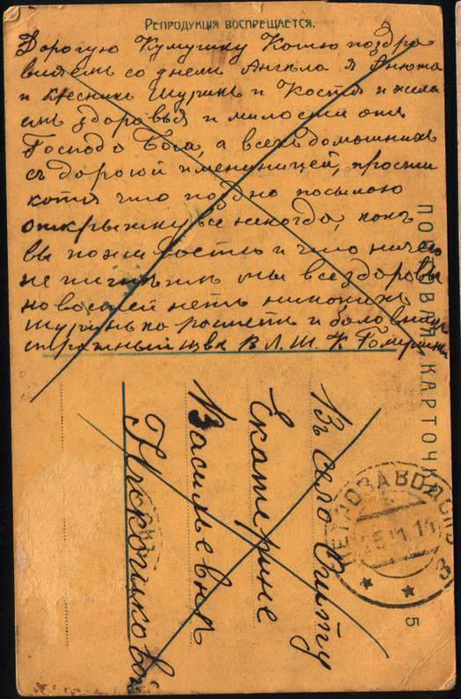 Репродукція воспрещается.
Дорогую Кумушку Котю поздра
вляемъ со днемъ Ангела я Анюта
и кресникъ Шурикъ и Костя и жела
емъ здоровья и милости отъ
Господа Бога, а всехъ домашнихъ
съ дорогой имениницей, прости
котя что поздно посылаю
открытку все некогда, какъ
вы поживаете и что ничего
не пишите мы все здоровы
новостей нетъ никакихъ
Шуринька ростетъ и баловникъ
страшный
ПОЧТОВАЯ КАРТОЧКА
Въ село Шилту
Екатерине
Васильевне
ПЕТРОЗАВОДСКЪ
25.11.14
5